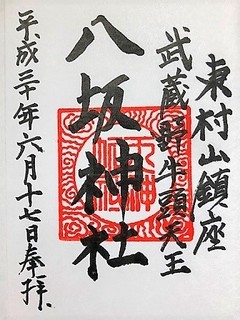 東村山鎮座
武蔵野牛頭天王
八坂神社
平成三十年六月十七日奉拝